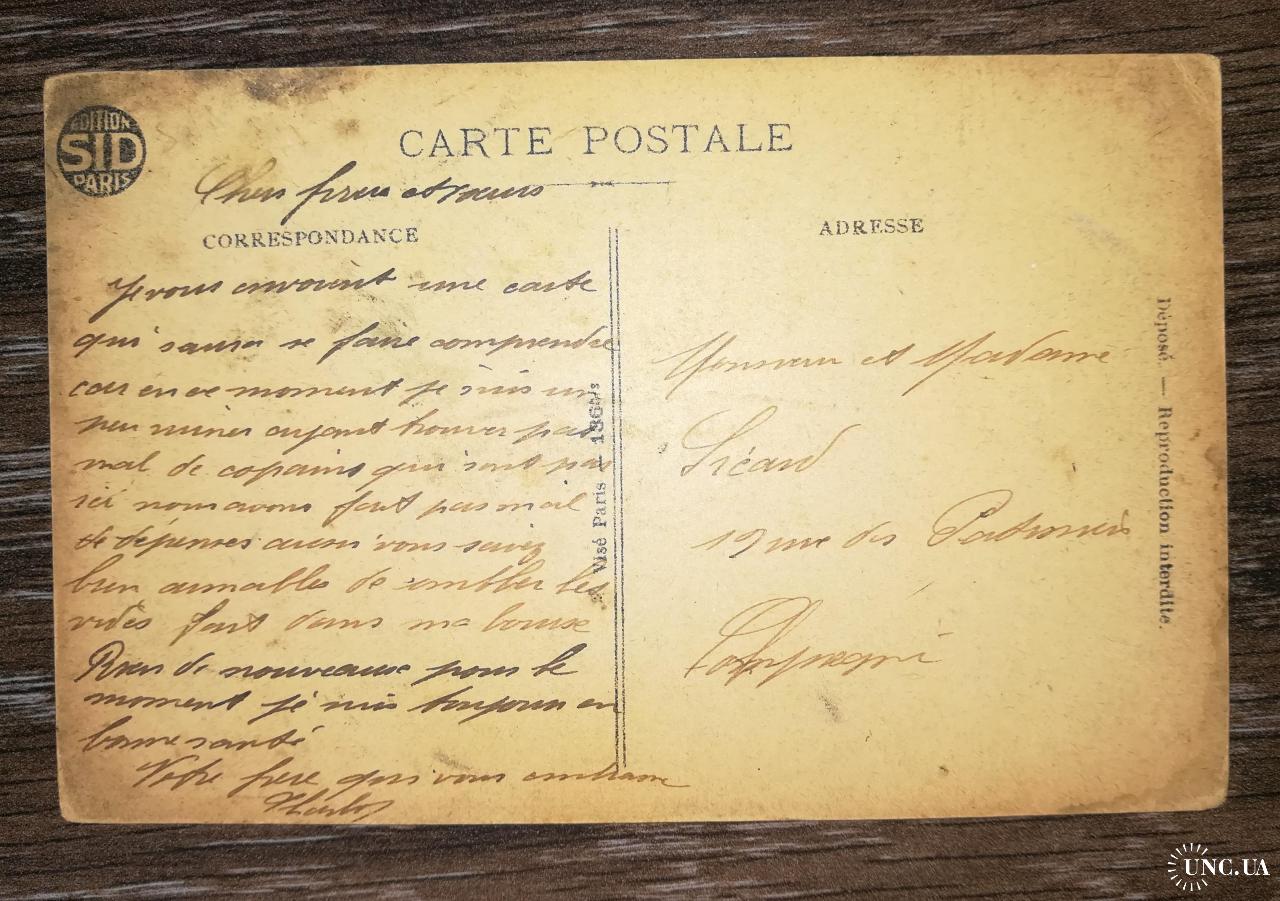 EDITION
SID
PARIS
CARTE POSTALE
Chers frere et sœurs
CORRESPONDANCE
ADRESSE
Je vous envoient une carte
qui saura se faire comprendre
car en ce moment je suis un
peu miner ayant trouver pas
mal de copains qui sont par
ici nous avons fait pas mal
de dépenses aussi vous seriez
bien aimables de combler les
vides fait dans ma bourse
Rien de nouveaux pour le
moment je suis toujours en
bonne santé
Votre frere qui vous embrasse
Visé Paris — 136bis
Monsieur et Madame
Sicard
19 rue des
Compiegne
Déposé. — Reproduction interdite.
UNC.UA